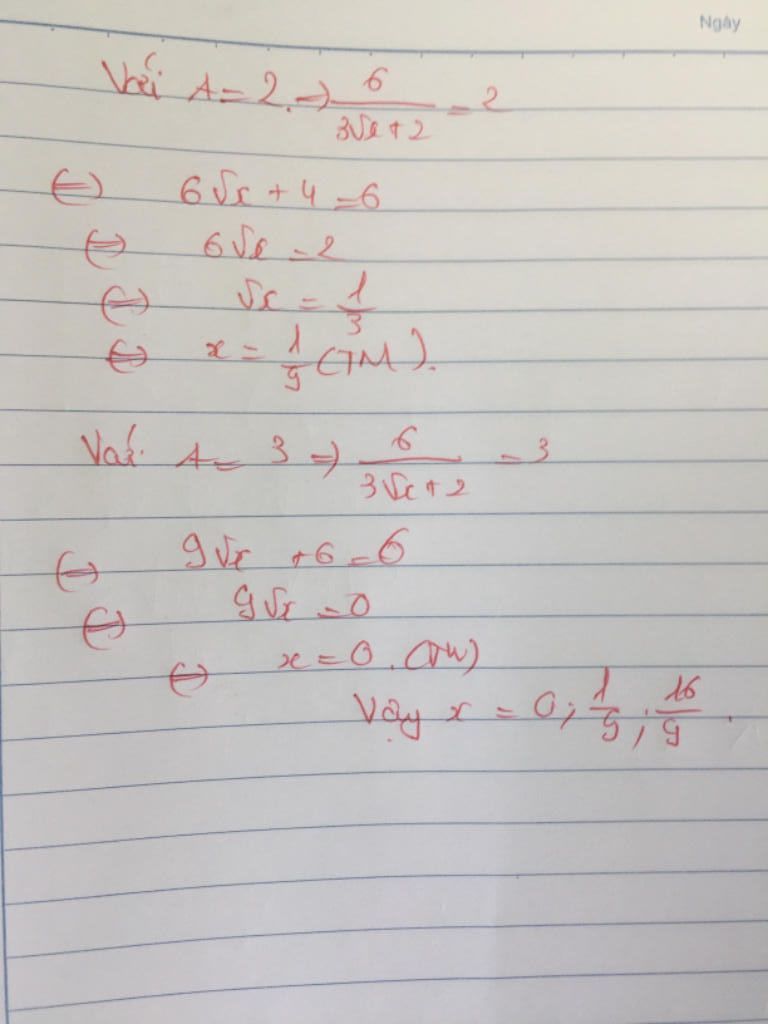 Ngày
Với A = 2 ⇒ 6/(3√x + 2) = 2
⇔ 6√x + 4 = 6
⇔ 6√x = 2
⇔ √x = 1/3
⇔ x = 1/9 (TM).
Với A = 3 ⇒ 6/(3√x + 2) = 3
⇔ 9√x + 6 = 6
⇔ 9√x = 0
⇔ x = 0. (TM)
Vậy x = 0; 1/9; 16/9.